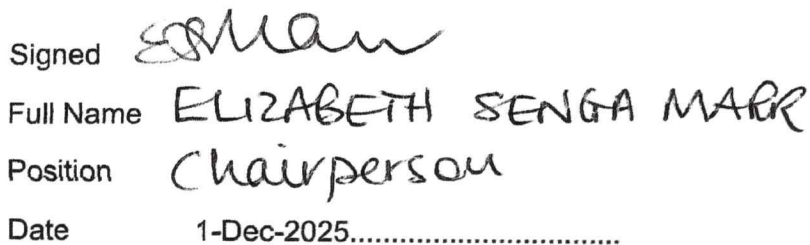 Signed
Full Name ELIZABETH SENGA MARR
Position Chairperson
Date 1-Dec-2025....................................